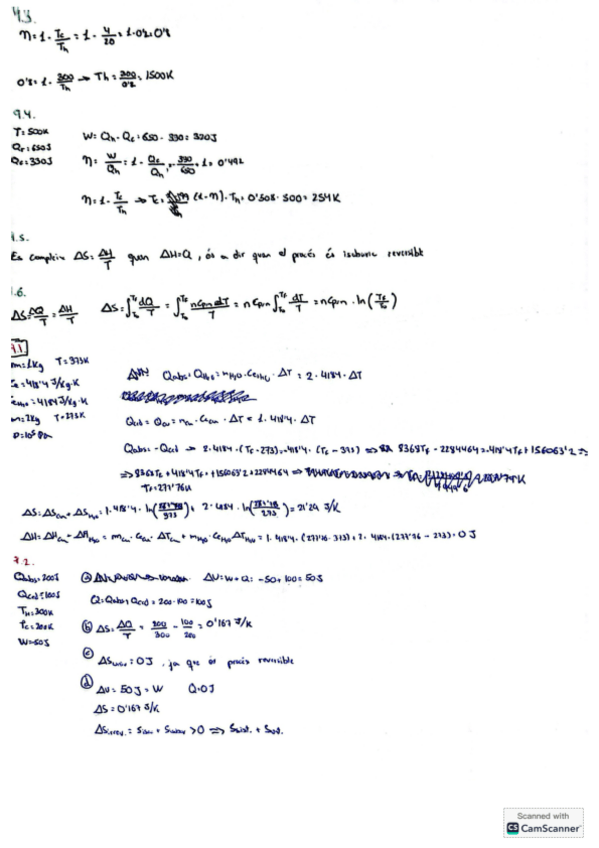 9.3.
η = 1 - Tc/Th = 1 - 4/20 = 1 - 0'2 = 0'8
0'8 = 1 - 300/Th → Th = 300/0'2 = 1500K
9.4.
T = 500K
Qr = 650J
Qc = 330J
W = Qh - Qc = 650 - 330 = 320J
η = W/Qh = 1 - Qc/Qh = - 330/650 + 1 = 0'492
η = 1 - Tc/Th → Tc = (1-η) · Th = 0'508 · 500 = 254K
1.5.
Es compleix ΔS = ΔH/T quan ΔH=Q, és a dir quan el procés és isobaric reversible
1.6.
ΔS = ΔQ/T = ΔH/T ΔS = ∫ dQ/T = ∫ nCpm dT/T = nCpm ∫ dT/T = nCpm · ln(Tf/To)
m = 1Kg T = 373K
= 418'4 J/Kg·K
= 4184 J/Kg·K
m = 2Kg T = 273K
P = 10⁵ Pa
Qabs = QH₂O = mH₂O · CeH₂O · ΔT = 2 · 4184 · ΔT
Qced = Qcu = mcu · Cecu · ΔT = 1 · 418'4 · ΔT
Qabs = -Qced → 2 · 4184 · (Tf - 273) = -418'4 · (Tf - 373) ⇒ 8368Tf - 2284464 = -418'4Tf + 156063'2 ⇒
⇒ 8368Tf + 418'4Tf = +156063'2 + 2284464 ⇒
Tf = 277'76K
ΔS = ΔScu + ΔSH₂O = 1 · 418'4 · ln( /373) + 2 · 4184 · ln( /273) = 21'29 J/K
ΔH = ΔHcu + ΔHH₂O = mcu · Cecu · ΔTcu + mH₂O · CeH₂O ΔTH₂O = 1 · 418'4 · (277'76 - 373) + 2 · 4184 · (277'76 - 273) = 0 J
7.2.
Qabs = 200J
Qced = 100J
TH = 300K
Tc = 200K
W = -50J
a) ΔU = W + Q = -50 + 100 = 50J
Q = Qabs + Qced = 200 - 100 = 100J
b) ΔS = ΔQ/T = 200/300 - 100/200 = 0'167 J/K
c) ΔSuniv = 0J, ja que és procés reversible
d) ΔU = 50J = W Q = 0J
ΔS = 0'167 J/K
Scanned with
CS CamScanner